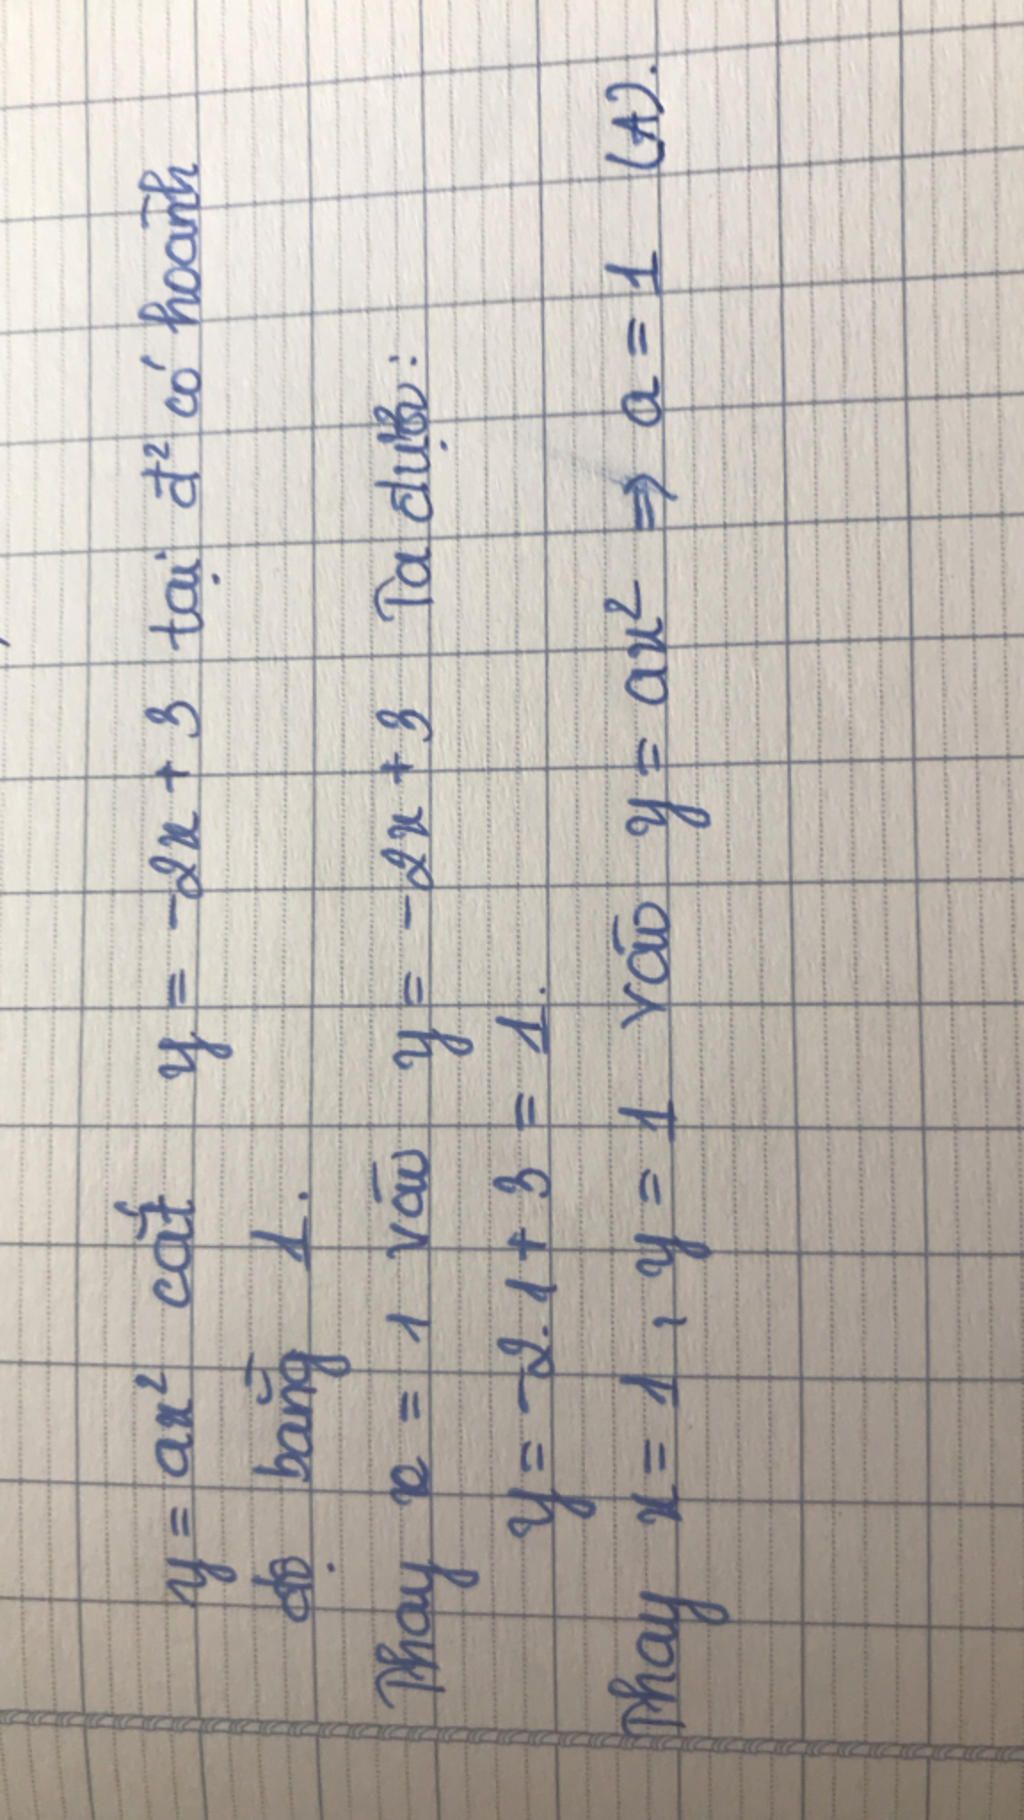 y = ax² cắt y = -2x + 3 tại đ² có hoành
độ bằng 1.
Thay x = 1 vào y = -2x + 3 Ta được:
y = -2.1 + 3 = 1.
Thay x = 1, y = 1 vào y = ax² ⇒ a = 1 (A).